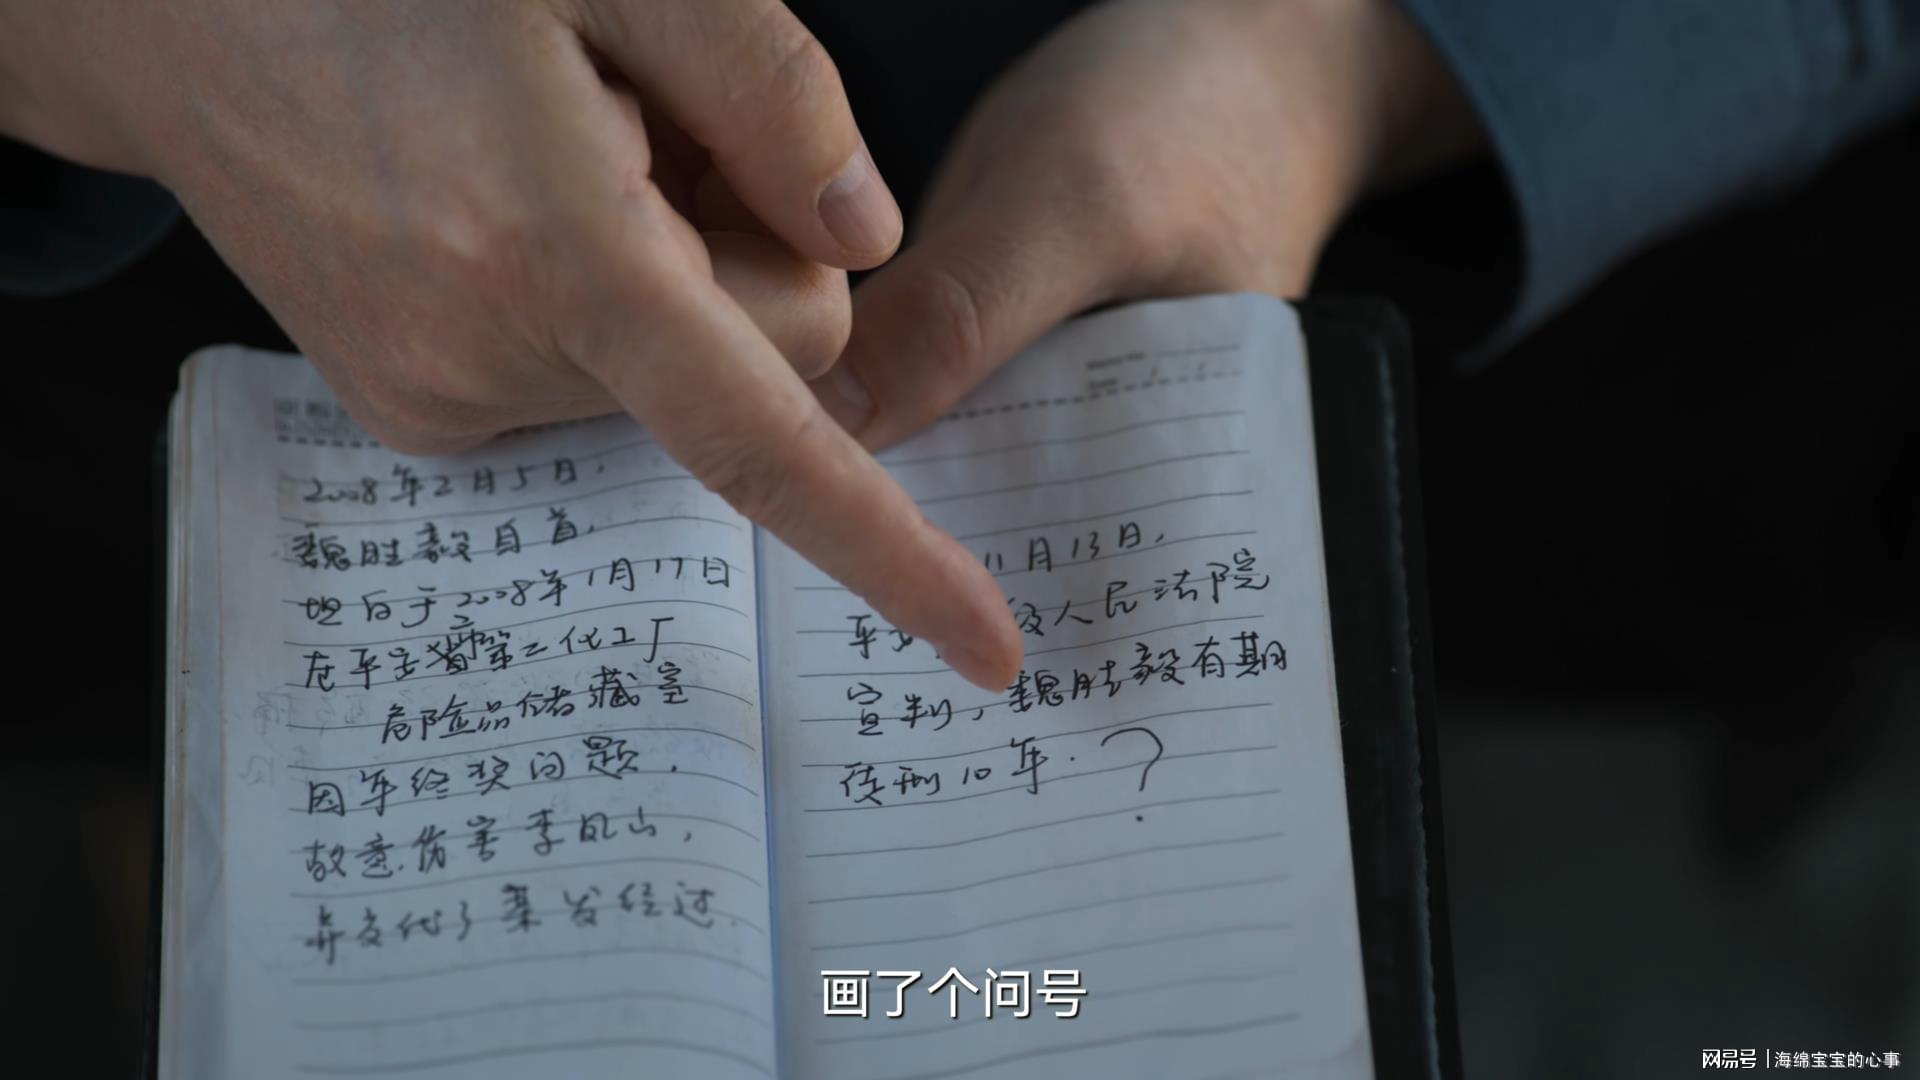 2008年2月5日，
魏胜毅自首，
坦白于2008年1月17日
在平宁省第二化工厂
危险品储藏室
因年终奖问题，
故意伤害李凤山，
并交代了案发经过.
11月13日，
平 级人民法院
宣判，魏胜毅有期
徒刑10年.？
Date
画了个问号
网易号 | 海绵宝宝的心事